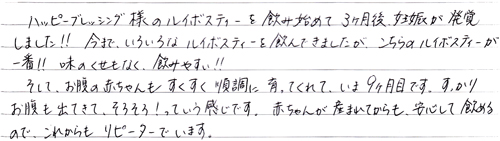 ハッピーブレッシング様のルイボスティーを飲み始めて3ヶ月後、妊娠が発覚
しました!! 今まで、いろいろなルイボスティーを飲んできましたが、こちらのルイボスティーが
一番!! 味のくせもなく、飲みやすい!!
そして、お腹の赤ちゃんもすくすく順調に育ってくれて、いま9ヶ月目です。すっかり
お腹も出てきて、そろそろ!っていう感じです。赤ちゃんが産まれてからも、安心して飲める
ので、これからもリピーターでいます。